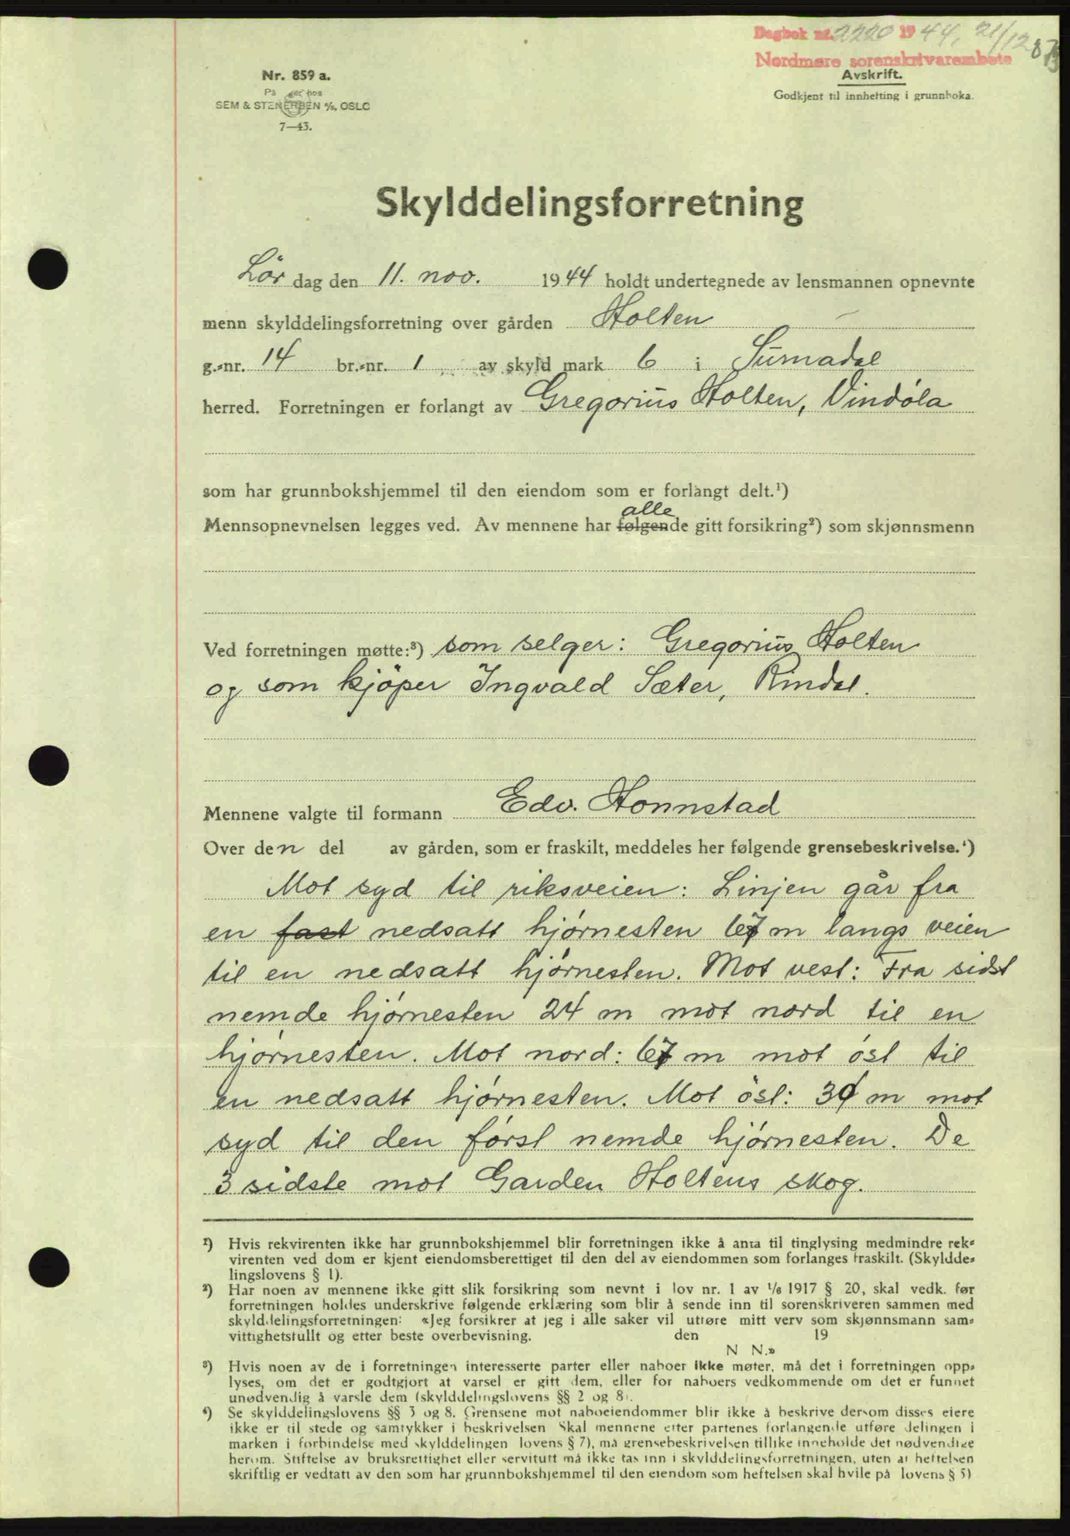 Dagbok nr. 2220 1944, 21/12 873
Nordmøre sorenskrivarembete
Nr. 859 a.
På hos
SEM & STENERSEN A/S, OSLO
7—43.
Avskrift.
Godkjent til innhefting i grunnboka.
Skylddelingsforretning
Lør dag den 11. nov. 1944 holdt undertegnede av lensmannen opnevnte
menn skylddelingsforretning over gården Holten
g.-nr. 14 br.-nr. 1 av skyld mark 6 i Surnadal
herred. Forretningen er forlangt av Gregorius Holten, Vindøla
som har grunnbokshjemmel til den eiendom som er forlangt delt.¹)
alle
Mennsopnevnelsen legges ved. Av mennene har følgende gitt forsikring²) som skjønnsmenn
Ved forretningen møtte:³) som selger: Gregorius Holten
og som kjöper Ingvald Sæter, Rindal.
Mennene valgte til formann Edv. Honnstad
Over den del av gården, som er fraskilt, meddeles her følgende grensebeskrivelse.⁴)
Mot syd til riksveien: Linjen går fra
en fast nedsatt hjørnesten 67 m langs veien
til en nedsatt hjørnesten. Mot vest: Fra sidst
nemde hjørnesten 24 m mot nord til en
hjørnesten. Mot nord: 67 m mot øst til
en nedsatt hjørnesten. Mot öst: 30 m mot
syd til den først nemde hjørnesten. De
3 sidste mot Garden Holtens skog.
¹) Hvis rekvirenten ikke har grunnbokshjemmel blir forretningen ikke å anta til tinglysing medmindre rek-
virenten ved dom er kjent eiendomsberettiget til den del av eiendommen som forlanges fraskilt. (Skyldde-
lingslovens § 1).
²) Har noen av mennene ikke gitt slik forsikring som nevnt i lov nr. 1 av ¹/₆ 1917 § 20, skal vedk. før
forretningen holdes underskrive følgende erklæring som blir å sende inn til sorenskriveren sammen med
skylddelingsforretningen: «Jeg forsikrer at jeg i alle saker vil utføre mitt verv som skjønnsmann sam-
vittighetsfullt og etter beste overbevisning. den 19
N N.»
³) Hvis noen av de i forretningen interesserte parter eller naboer ikke møter, må det i forretningen opp-
lyses, om det er godtgjort at varsel er gitt dem, eller for naboers vedkommende om det er funnet
unødvendig å varsle dem (skylddelingslovens §§ 2 og 8).
⁴) Se skylddelingslovens §§ 3 og 8. Grensene mot naboeiendommer blir ikke å beskrive dersom disses eiere
ikke er til stede og samtykker i beskrivelsen Skal mennene etter partenes forlangende utføre delingen i
marken i forbindelse med skylddelingen lovens § 7), må grensebeskrivelsen tillike inneholde det nødvendige
herom. Stiftelse av bruksrettighet eller servitutt må ikke tas inn i skylddelingsforretningen, uten at heftelsen
skriftlig er vedtatt av den som har grunnbokshjemmel til den eiendom som heftelsen skal hvile på lovens § 5)